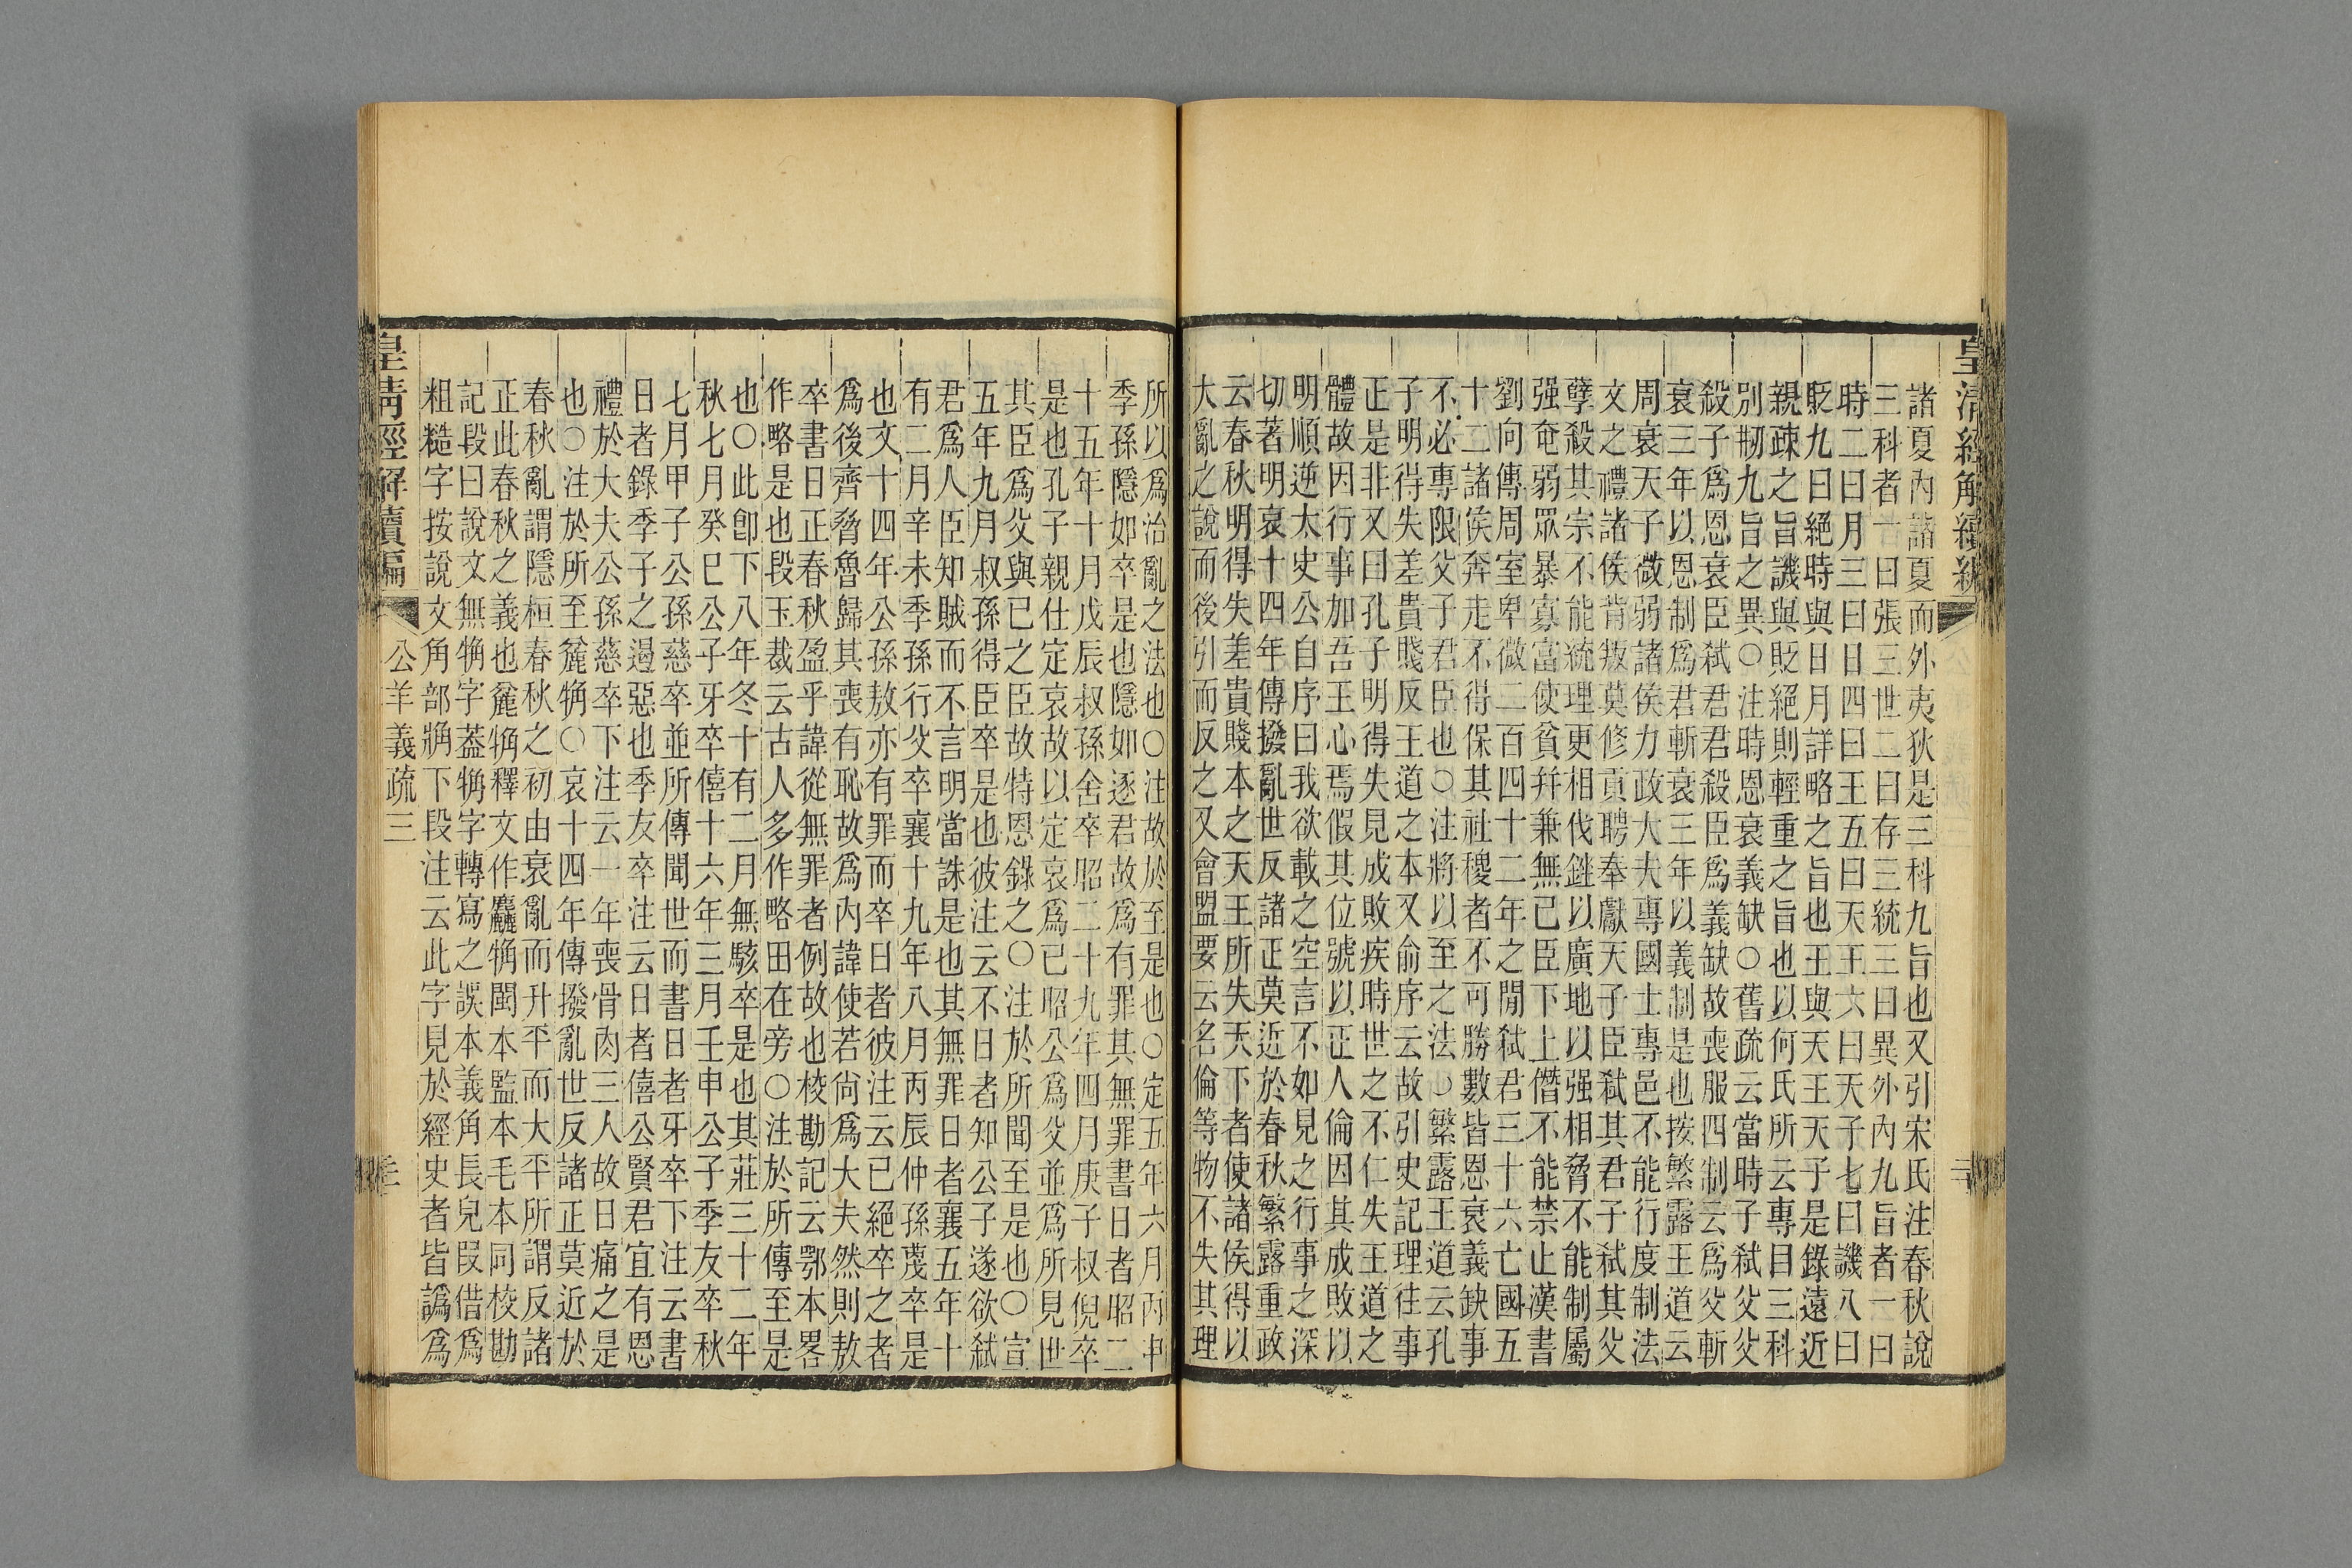 皇清經解續編
諸夏內諸夏而外夷狄是三科九旨也又引宋氏注春秋說
三科者一曰張三世二曰存三統三曰異外內九旨者一曰
時二曰月三曰日四曰王五曰天王六曰天子七曰譏八曰
貶九曰絕時與日月詳略之旨也王與天王天子是錄遠近
親疎之旨譏與貶絕則輕重之旨也以何氏所云專目三科
別㓞九旨之異○注時恩衰義缺○舊疏云當時子弒父父
殺子爲恩衰臣弒君君殺臣爲義缺故喪服四制云爲父斬
衰三年以恩制爲君斬衰三年以義制是也按繁露王道云
周衰天子微弱諸侯力政大夫專國士專邑不能行度制法
文之禮諸侯背叛莫修貢聘奉獻天子臣弒其君子弒其父
孽殺其宗不能統理更相伐銼以廣地以强相脅不能制屬
强奄弱眾暴寡富使貧幷兼無已臣下上僭不能禁止漢書
劉向傳周室卑微二百四十二年之閒弒君三十六亡國五
十二諸侯奔走不得保其社稷者不可勝數皆恩衰義缺事
不必專限父子君臣也○注將以至之法○繁露王道云孔
子明得失差貴賤反王道之本又俞序云故引史記理往事
正是非又曰孔子明得失見成敗疾時世之不仁失王道之
體故因行事加吾王心焉假其位號以正人倫因其成敗以
明順逆太史公自序曰我欲載之空言不如見之行事之深
切著明哀十四年傳撥亂世反諸正莫近於春秋繁露重政
云春秋明得失差貴賤本之天王所失天下者使諸侯得以
大亂之說而後引而反之又會盟要云名倫等物不失其理
所以爲治亂之法也○注故於至是也○定五年六月丙申
季孫隱如卒是也隱如逐君故爲有罪其無罪書日者昭二
十五年十月戊辰叔孫舍卒昭二十九年四月庚子叔倪卒
是也孔子親仕定哀故以定哀爲已昭公爲父並爲所見世
其臣爲父與已之臣故特恩錄之○注於所聞至是也○宣
五年九月叔孫得臣卒是也彼注云不日者知公子遂欲弒
君爲人臣知賊而不言明當誅是也其無罪日者襄五年十
有二月辛未季孫行父卒襄十九年八月丙辰仲孫蔑卒是
也文十四年公孫敖亦有罪而卒日者彼注云已絕卒之者
爲後齊脅魯歸其喪有恥故爲內諱使若尙爲大夫然則敖
卒書日正春秋盈乎諱從無罪者例故也校勘記云鄂本畧
作略是也段玉裁云古人多作略田在旁○注於所傳至是
也○此卽下八年冬十有二月無駭卒是也其莊三十二年
秋七月癸巳公子牙卒僖十六年三月壬申公子季友卒秋
七月甲子公孫慈卒並所傳聞世而書日者牙卒下注云書
日者錄季子之遏惡也季友卒注云日者僖公賢君宜有恩
禮於大夫公孫慈卒下注云一年喪骨肉三人故日痛之是
也○注於所至麄觕○哀十四年傳撥亂世反諸正莫近於
春秋亂謂隱桓春秋之初由衰亂而升平而大平所謂反諸
正此春秋之義也麄觕釋文作麤觕閩本監本毛本同校勘
記段曰說文無觕字葢觕字轉寫之誤本義角長皃叚借爲
粗糙字按說文角部觕下段注云此字見於經史者皆譌爲
皇淸經解續編
公羊義疏三